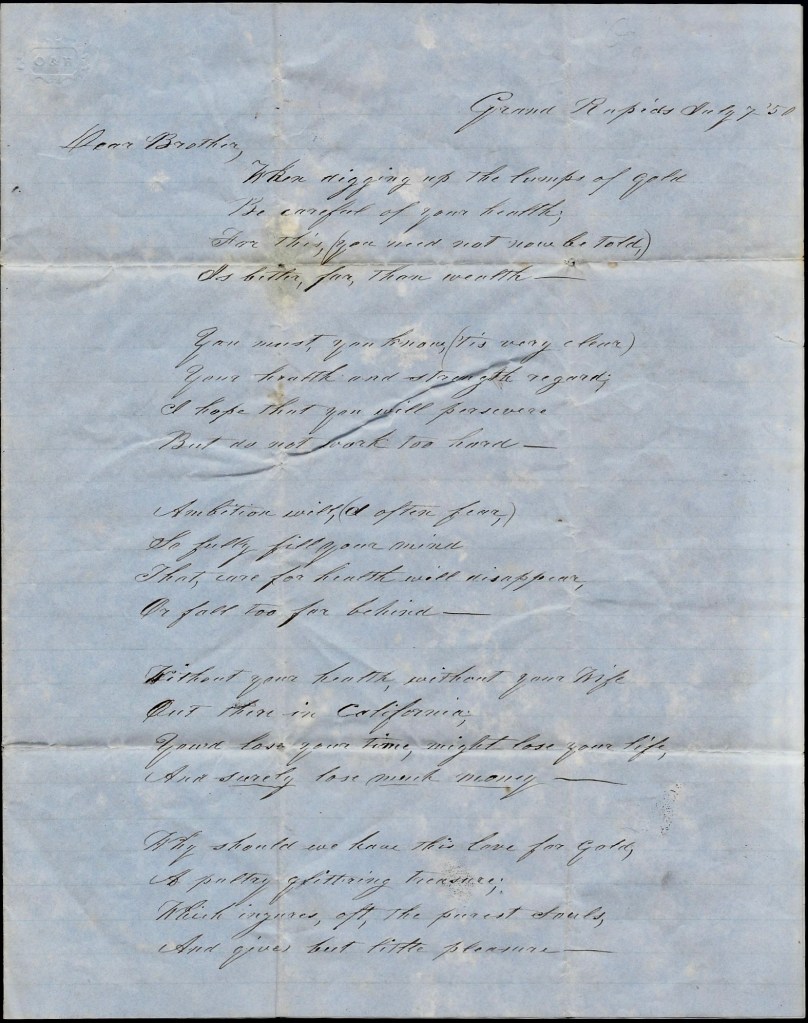 O & H
Grand Rapids July 7 '50
Dear Brother,
When digging up the lumps of gold
Be careful of your health;
For this, (you need not now be told,)
Is better, far, than wealth —
You must, you know, ('tis very clear)
Your health and strength regard;
I hope that you will persevere
But do not work too hard —
Ambition will, (I often fear,)
So fully fill your mind
That, care for health will disappear,
Or fall too far behind —
Without your health, without your Wife
Out there in California;
Youd lose your time, might lose your life,
And surely lose much money —
Why should we have this love for Gold,
A paltry glittring treasure;
Which injures, oft, the purest Souls,
And gives but little pleasure —